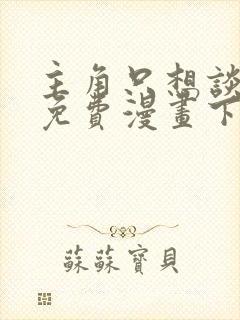 主角只想談
免費漫畫下
蘇蘇寶貝